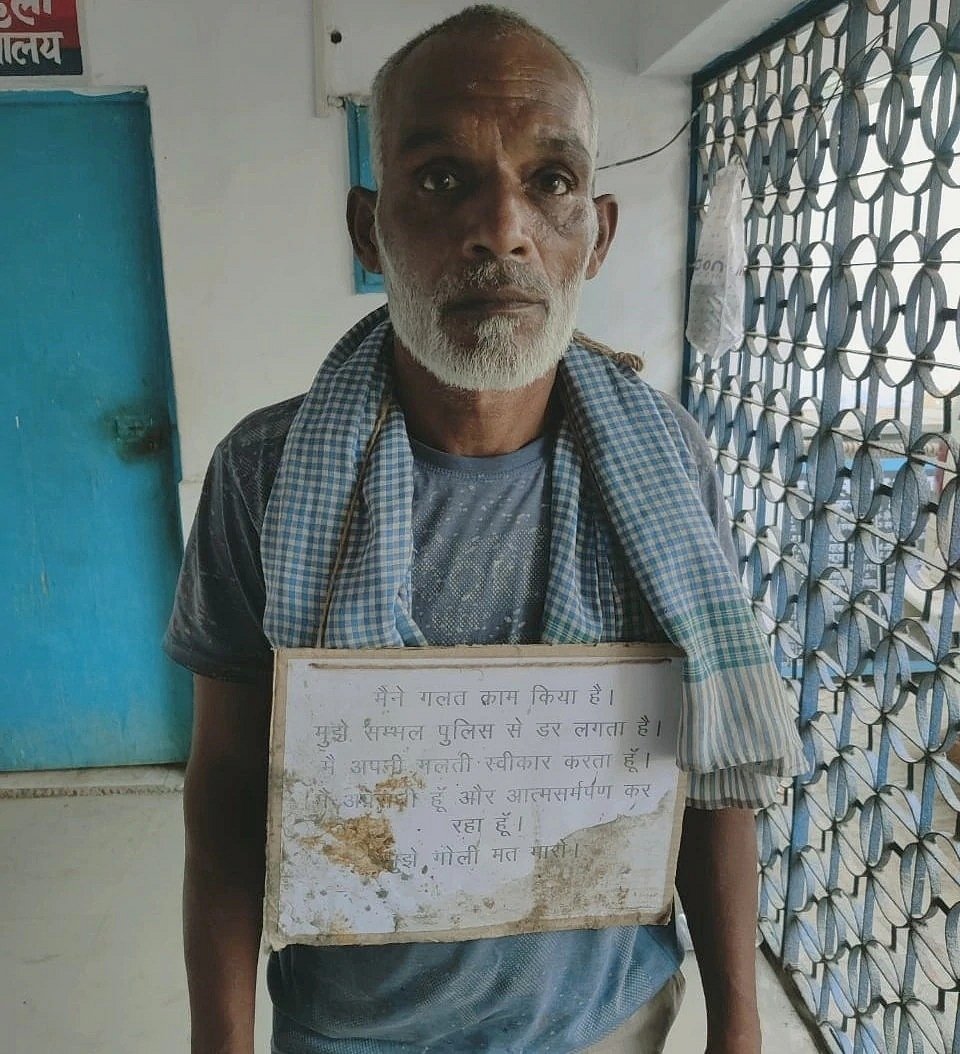 मैने गलत काम किया है।
मुझे सम्भल पुलिस से डर लगता है।
मै अपनी गलती स्वीकार करता हूँ।
हूँ और आत्मसर्मपण कर
रहा हूँ।
मुझे गोली मत मारो।